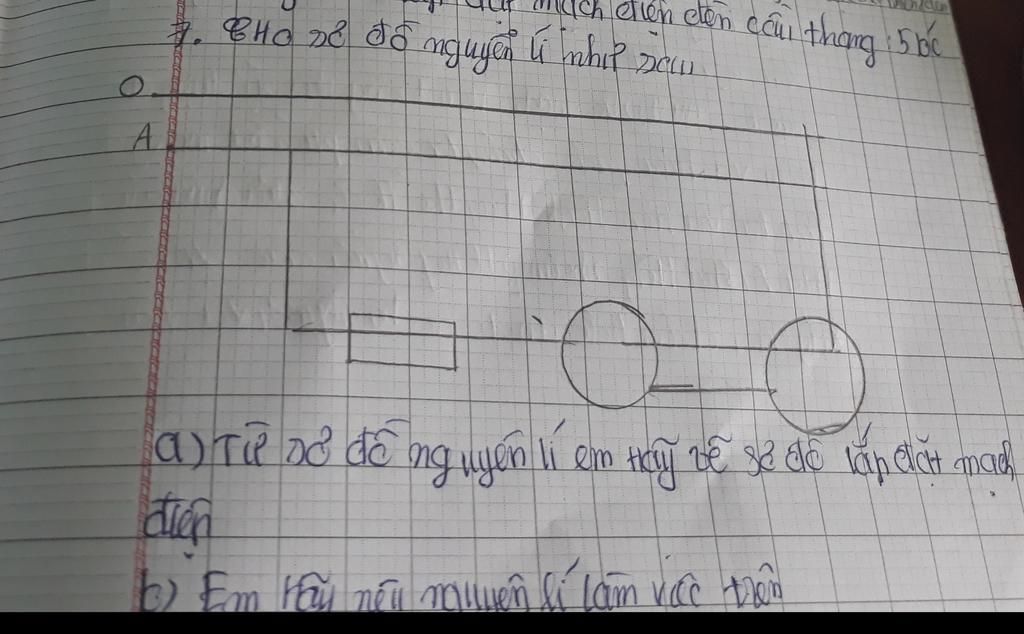 mạch điện đèn cầu thang: 5 bóc
7. CHO sơ đồ nguyên lí như sau
O
A
a) Từ sơ đồ nguyên lí em hãy vẽ sơ đồ lắp đặt mạch
điện
b) Em hãy nêu nguyên lí làm việc trên